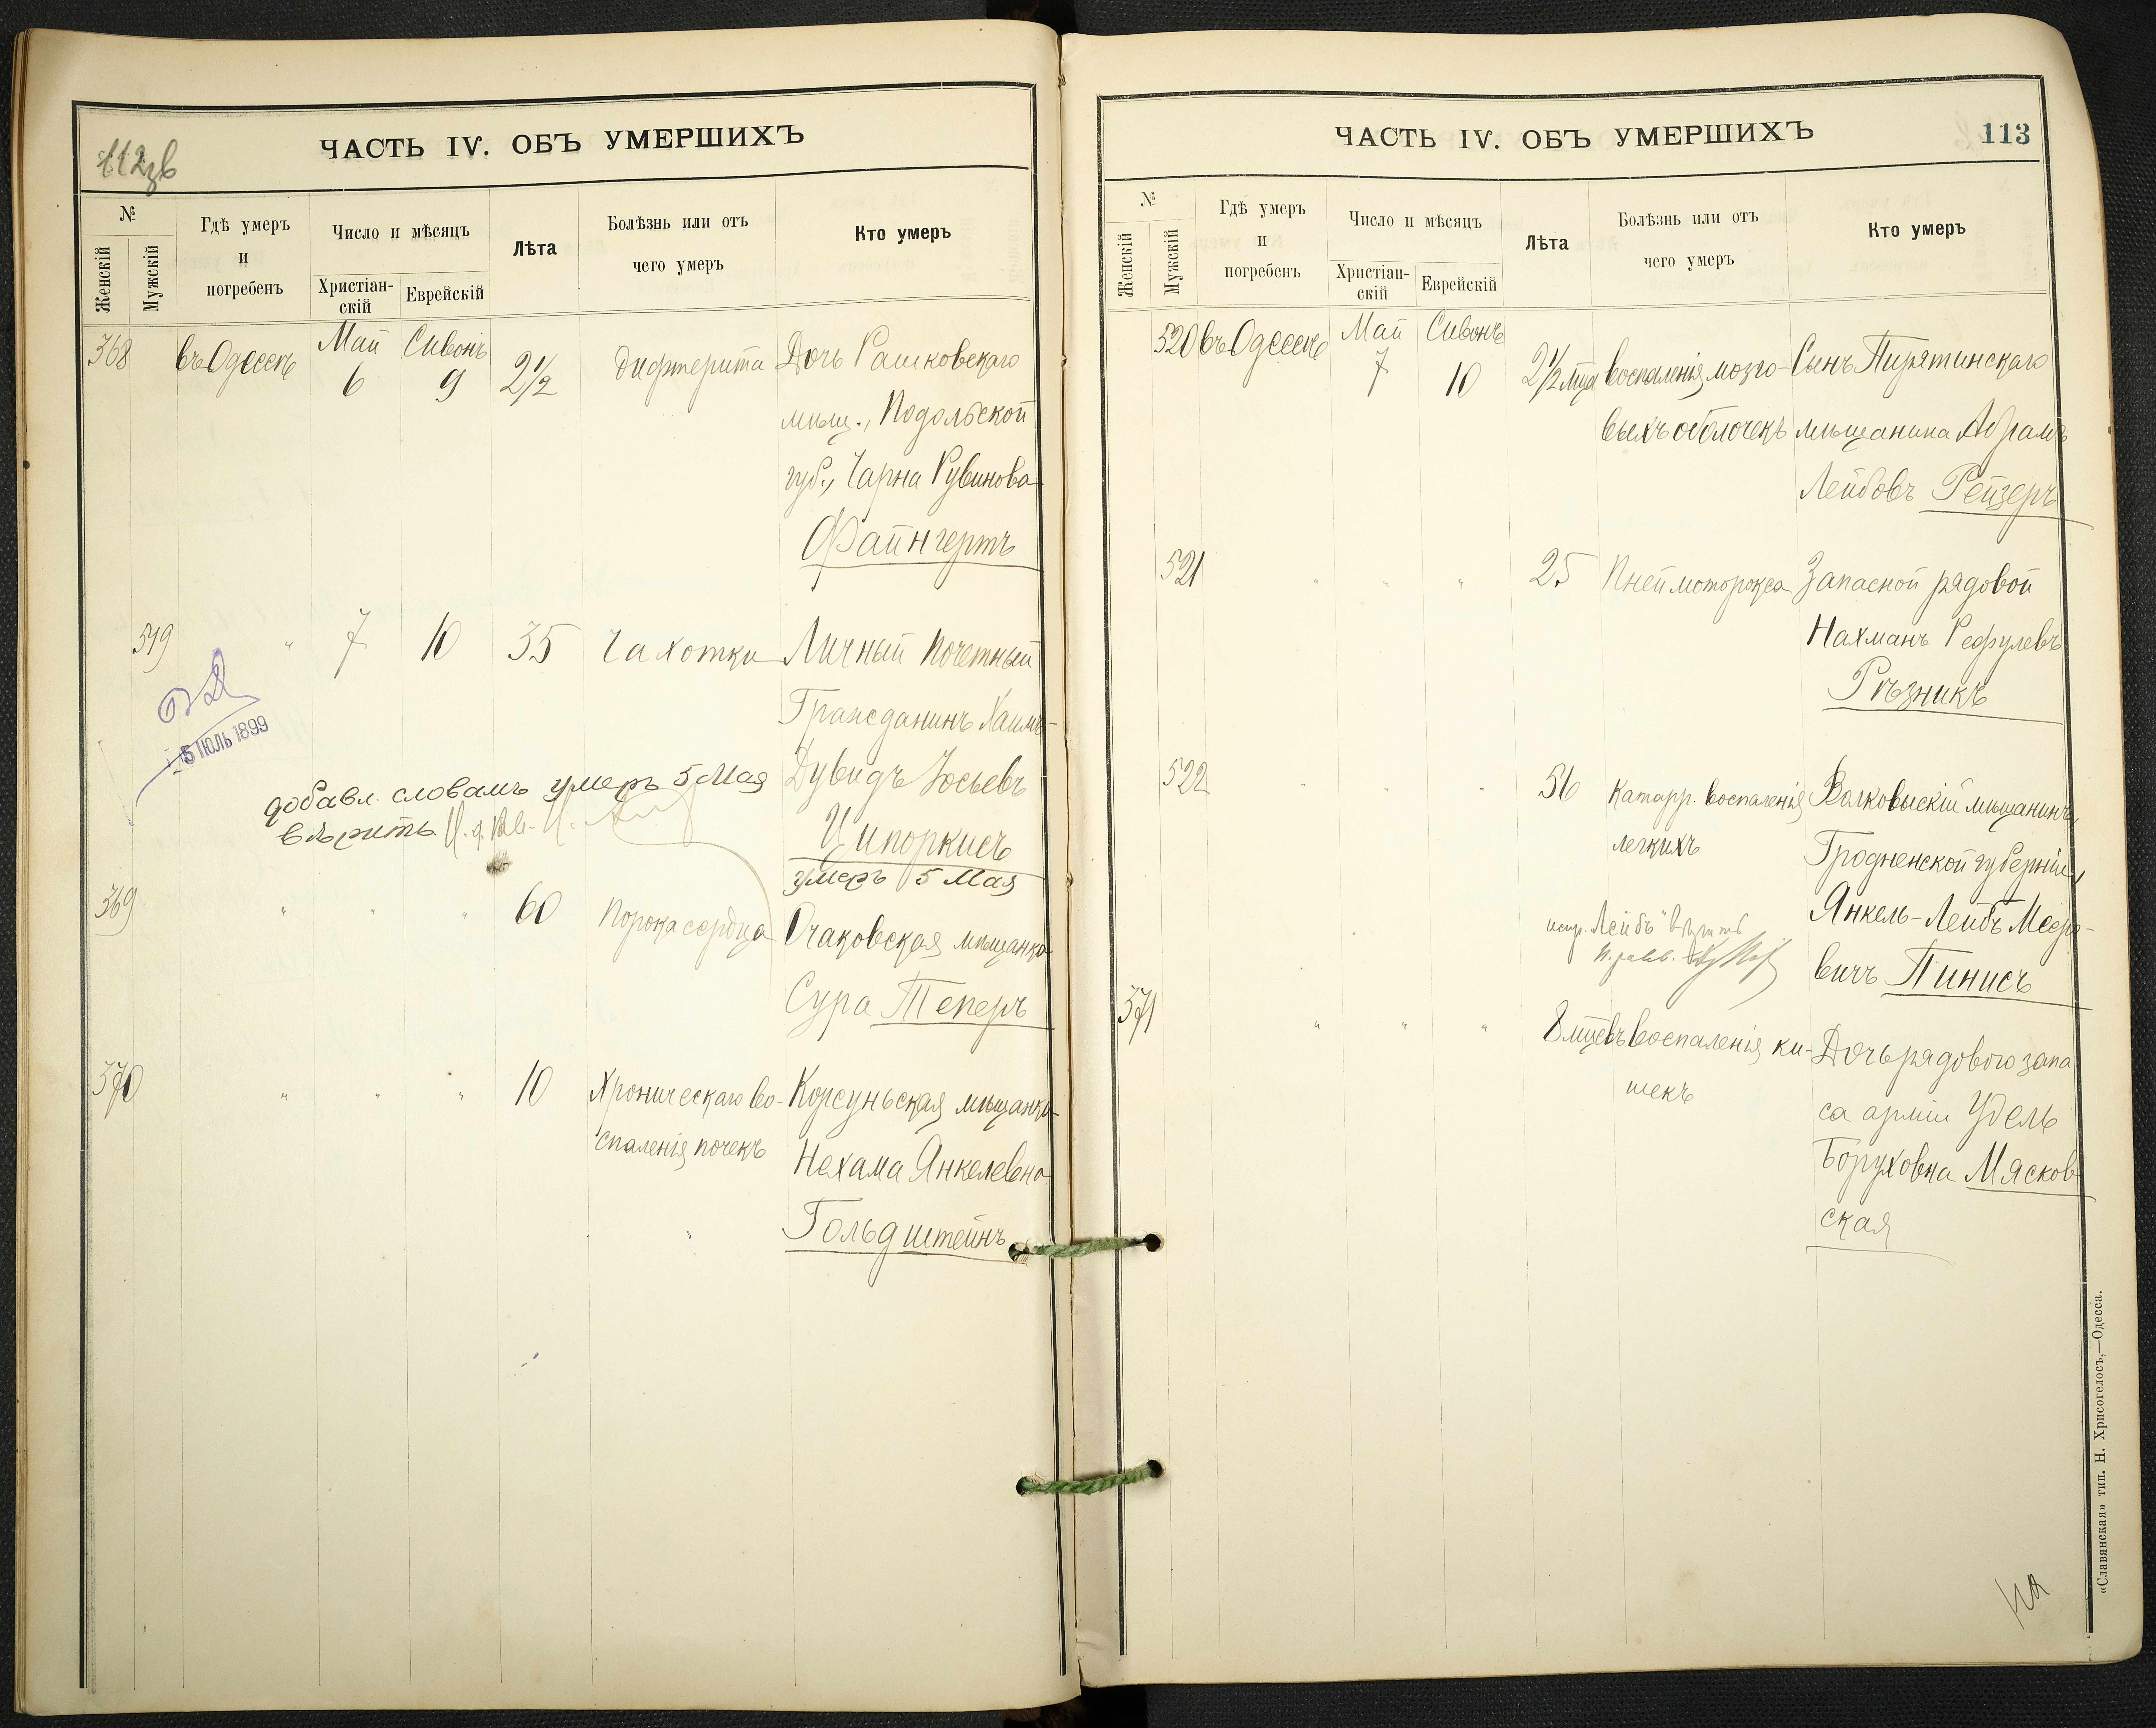 112зв
ЧАСТЬ IV. ОБЪ УМЕРШИХЪ
№
Женскій
Мужскій
Гдѣ умеръ
и
погребенъ
Число и мѣсяцъ
Христіан-
скій
Еврейскій
Лѣта
Болѣзнь или отъ
чего умеръ
Кто умеръ
368 въ Одессѣ Май 6 Сивонъ 9 2 1/2 дифтерита Дочь Рашковскаго
мѣщ., Подольской
губ., Чарна Рувинова
Файнгертъ
519 " 7 10 35 Чахотки Личный Почетный
Гражданинъ Хаимъ-
Дувидъ Іосьевъ
Ципоркисъ
умеръ 5 Мая
5 ІЮЛЬ 1899
добавл. словамъ умеръ 5 Мая
вѣрить
369 " " " 60 Порока сердца Очаковская мѣщанка
Сура Теперъ
370 " " " 10 Хроническаго во- Корсуньская мѣщанка
спаленія почекъ Нехама Янкелевна
Гольдштейнъ
ЧАСТЬ IV. ОБЪ УМЕРШИХЪ
113
№
Женскій
Мужскій
Гдѣ умеръ
и
погребенъ
Число и мѣсяцъ
Христіан-
скій
Еврейскій
Лѣта
Болѣзнь или отъ
чего умеръ
Кто умеръ
520 въ Одессѣ Май 7 Сивонъ 10 2 1/2 мѣц воспаленія мозго- Сынъ Пирятинскаго
выхъ оболочекъ мѣщанина Абрамъ
Лейбовъ Рейзеръ
521 " " " 25 Пнеймоторокса Запасной рядовой
Нахманъ Рефулевъ
Рѣзникъ
522 " " " 56 Катарр. воспаленія Волковыскій мѣщанинъ,
легкихъ Гродненской губерніи,
Янкель-Лейбъ Мееро-
вичъ Пинисъ
испр. "Лейбъ" вѣрить
371 " " " 8 мцевъ воспаленія ки- Дочь рядового запа
шекъ са арміи Удель
Боруховна Мясков
ская
«Славянская» тип. Н. Хрисогелосъ,—Одесса.